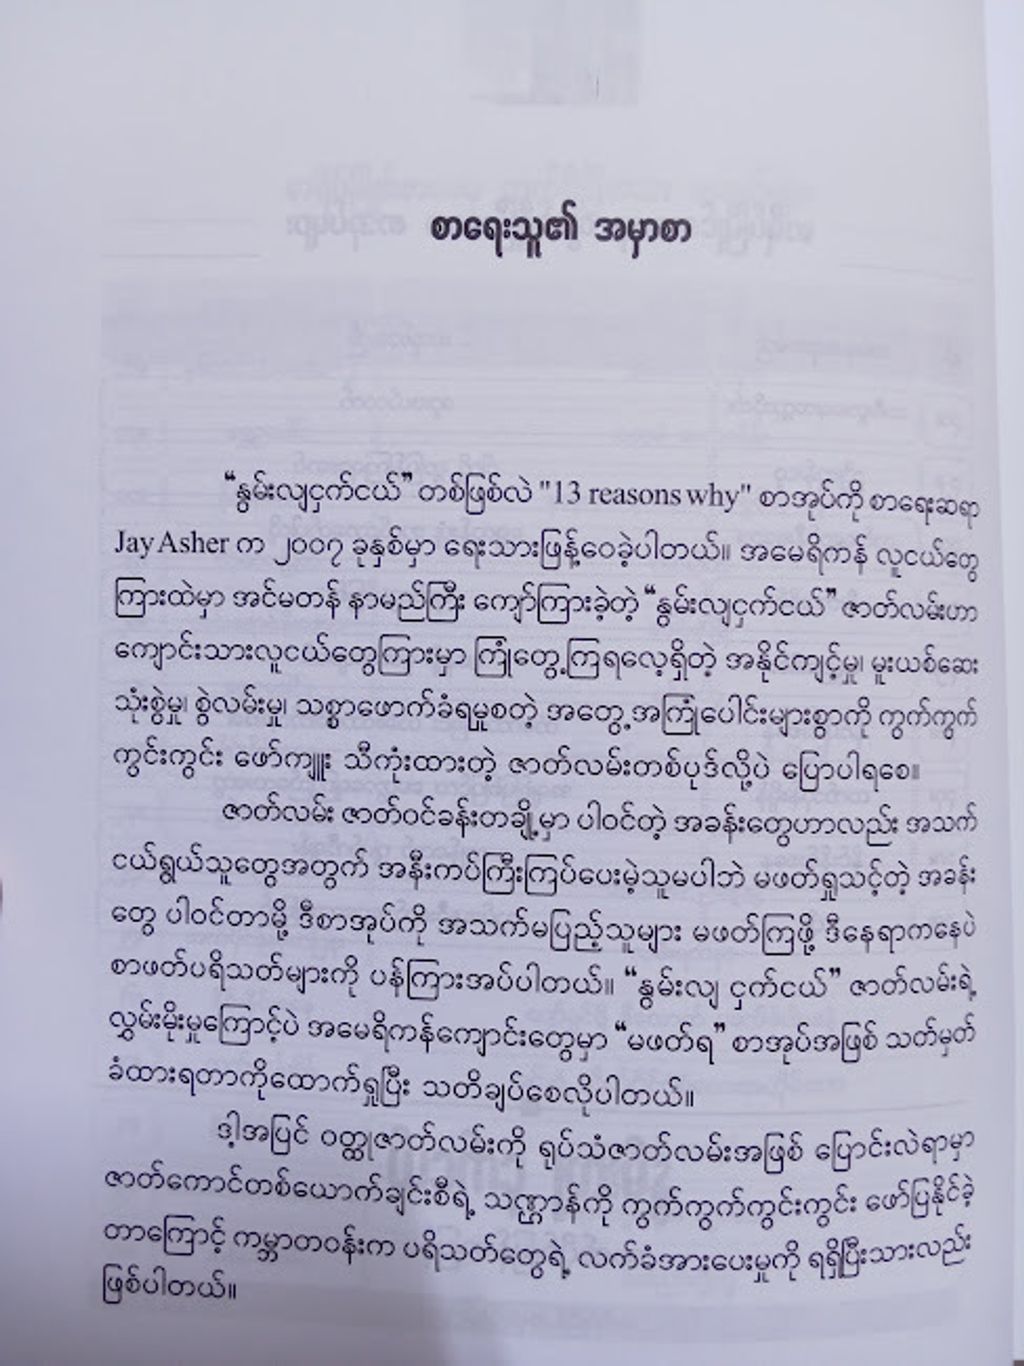 စာရေးသူ၏ အမှာစာ
“နွမ်းလျငှက်ငယ်” တစ်ဖြစ်လဲ "13 reasons why" စာအုပ်ကို စာရေးဆရာ
Jay Asher က ၂၀၀၇ ခုနှစ်မှာ ရေးသားဖြန့်ဝေခဲ့ပါတယ်။ အမေရိကန် လူငယ်တွေ
ကြားထဲမှာ အင်မတန် နာမည်ကြီး ကျော်ကြားခဲ့တဲ့ “နွမ်းလျငှက်ငယ်” ဇာတ်လမ်းဟာ
ကျောင်းသားလူငယ်တွေကြားမှာ ကြုံတွေ့ကြရလေ့ရှိတဲ့ အနိုင်ကျင့်မှု၊ မူးယစ်ဆေး
သုံးစွဲမှု၊ စွဲလမ်းမှု၊ သစ္စာဖောက်ခံရမှုစတဲ့ အတွေ့အကြုံပေါင်းများစွာကို ကွက်ကွက်
ကွင်းကွင်း ဖော်ကျူး သီကုံးထားတဲ့ ဇာတ်လမ်းတစ်ပုဒ်လို့ပဲ ပြောပါရစေ။
ဇာတ်လမ်း ဇာတ်ဝင်ခန်းတချို့မှာ ပါဝင်တဲ့ အခန်းတွေဟာလည်း အသက်
ငယ်ရွယ်သူတွေအတွက် အနီးကပ်ကြီးကြပ်ပေးမဲ့သူမပါဘဲ မဖတ်ရှုသင့်တဲ့ အခန်း
တွေ ပါဝင်တာမို့ ဒီစာအုပ်ကို အသက်မပြည့်သူများ မဖတ်ကြဖို့ ဒီနေရာကနေပဲ
စာဖတ်ပရိသတ်များကို ပန်ကြားအပ်ပါတယ်။ “နွမ်းလျ ငှက်ငယ်” ဇာတ်လမ်းရဲ့
လွှမ်းမိုးမှုကြောင့်ပဲ အမေရိကန်ကျောင်းတွေမှာ “မဖတ်ရ” စာအုပ်အဖြစ် သတ်မှတ်
ခံထားရတာကိုထောက်ရှုပြီး သတိချပ်စေလိုပါတယ်။
ဒါ့အပြင် ဝတ္ထုဇာတ်လမ်းကို ရုပ်သံဇာတ်လမ်းအဖြစ် ပြောင်းလဲရာမှာ
ဇာတ်ကောင်တစ်ယောက်ချင်းစီရဲ့ သဏ္ဌာန်ကို ကွက်ကွက်ကွင်းကွင်း ဖော်ပြနိုင်ခဲ့
တာကြောင့် ကမ္ဘာတဝန်းက ပရိသတ်တွေရဲ့ လက်ခံအားပေးမှုကို ရရှိပြီးသားလည်း
ဖြစ်ပါတယ်။